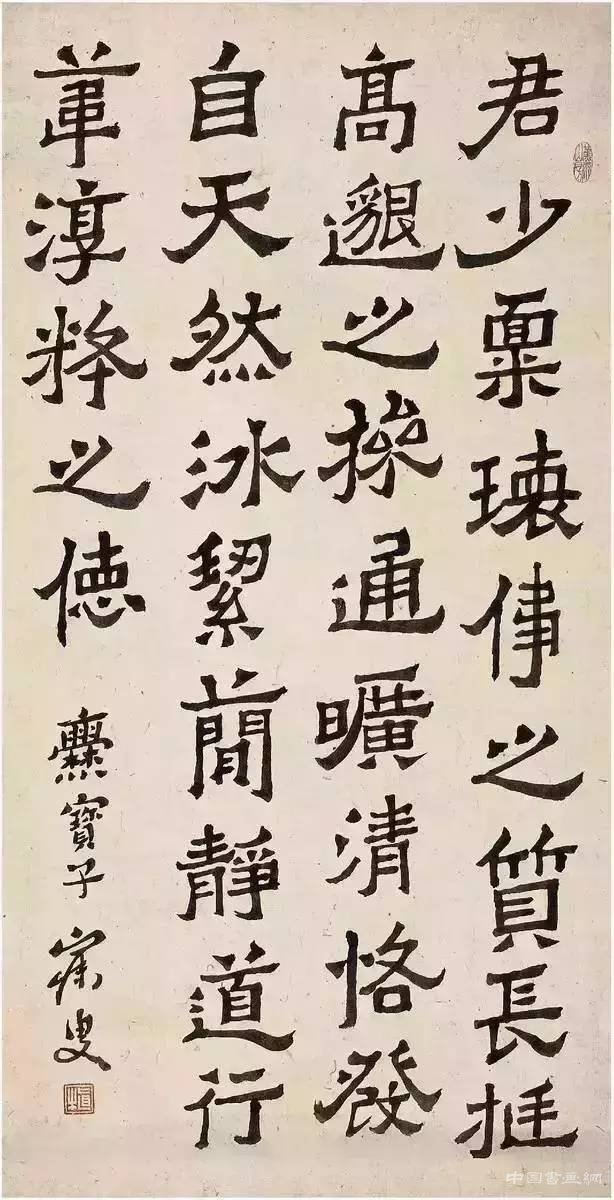 君少稟瓌偉之質長挺
髙邈之操通曠清恪發
自天然冰絜蕳靜道行
葦淳粹之德 爨寶子 寐叟
中国書画網